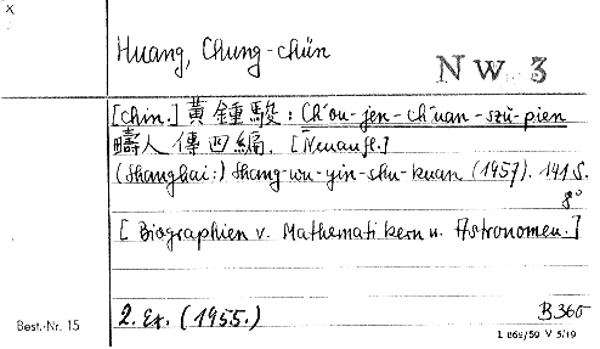 x
Huang, Chung-chün
N W. 3
[chin.] 黃鍾駿 : Ch'ou-jen-ch'uan-szŭ-pien
疇人傳四編. [Neuaufl.]
(Shanghai:) Shang-wu-yin-shu-kuan (1957). 141 S.
8°
[Biographien v. Mathematikern u. Astronomen.]
2. Ex. (1955.)
B 360
Best.-Nr. 15
L 868/59 V 5/19